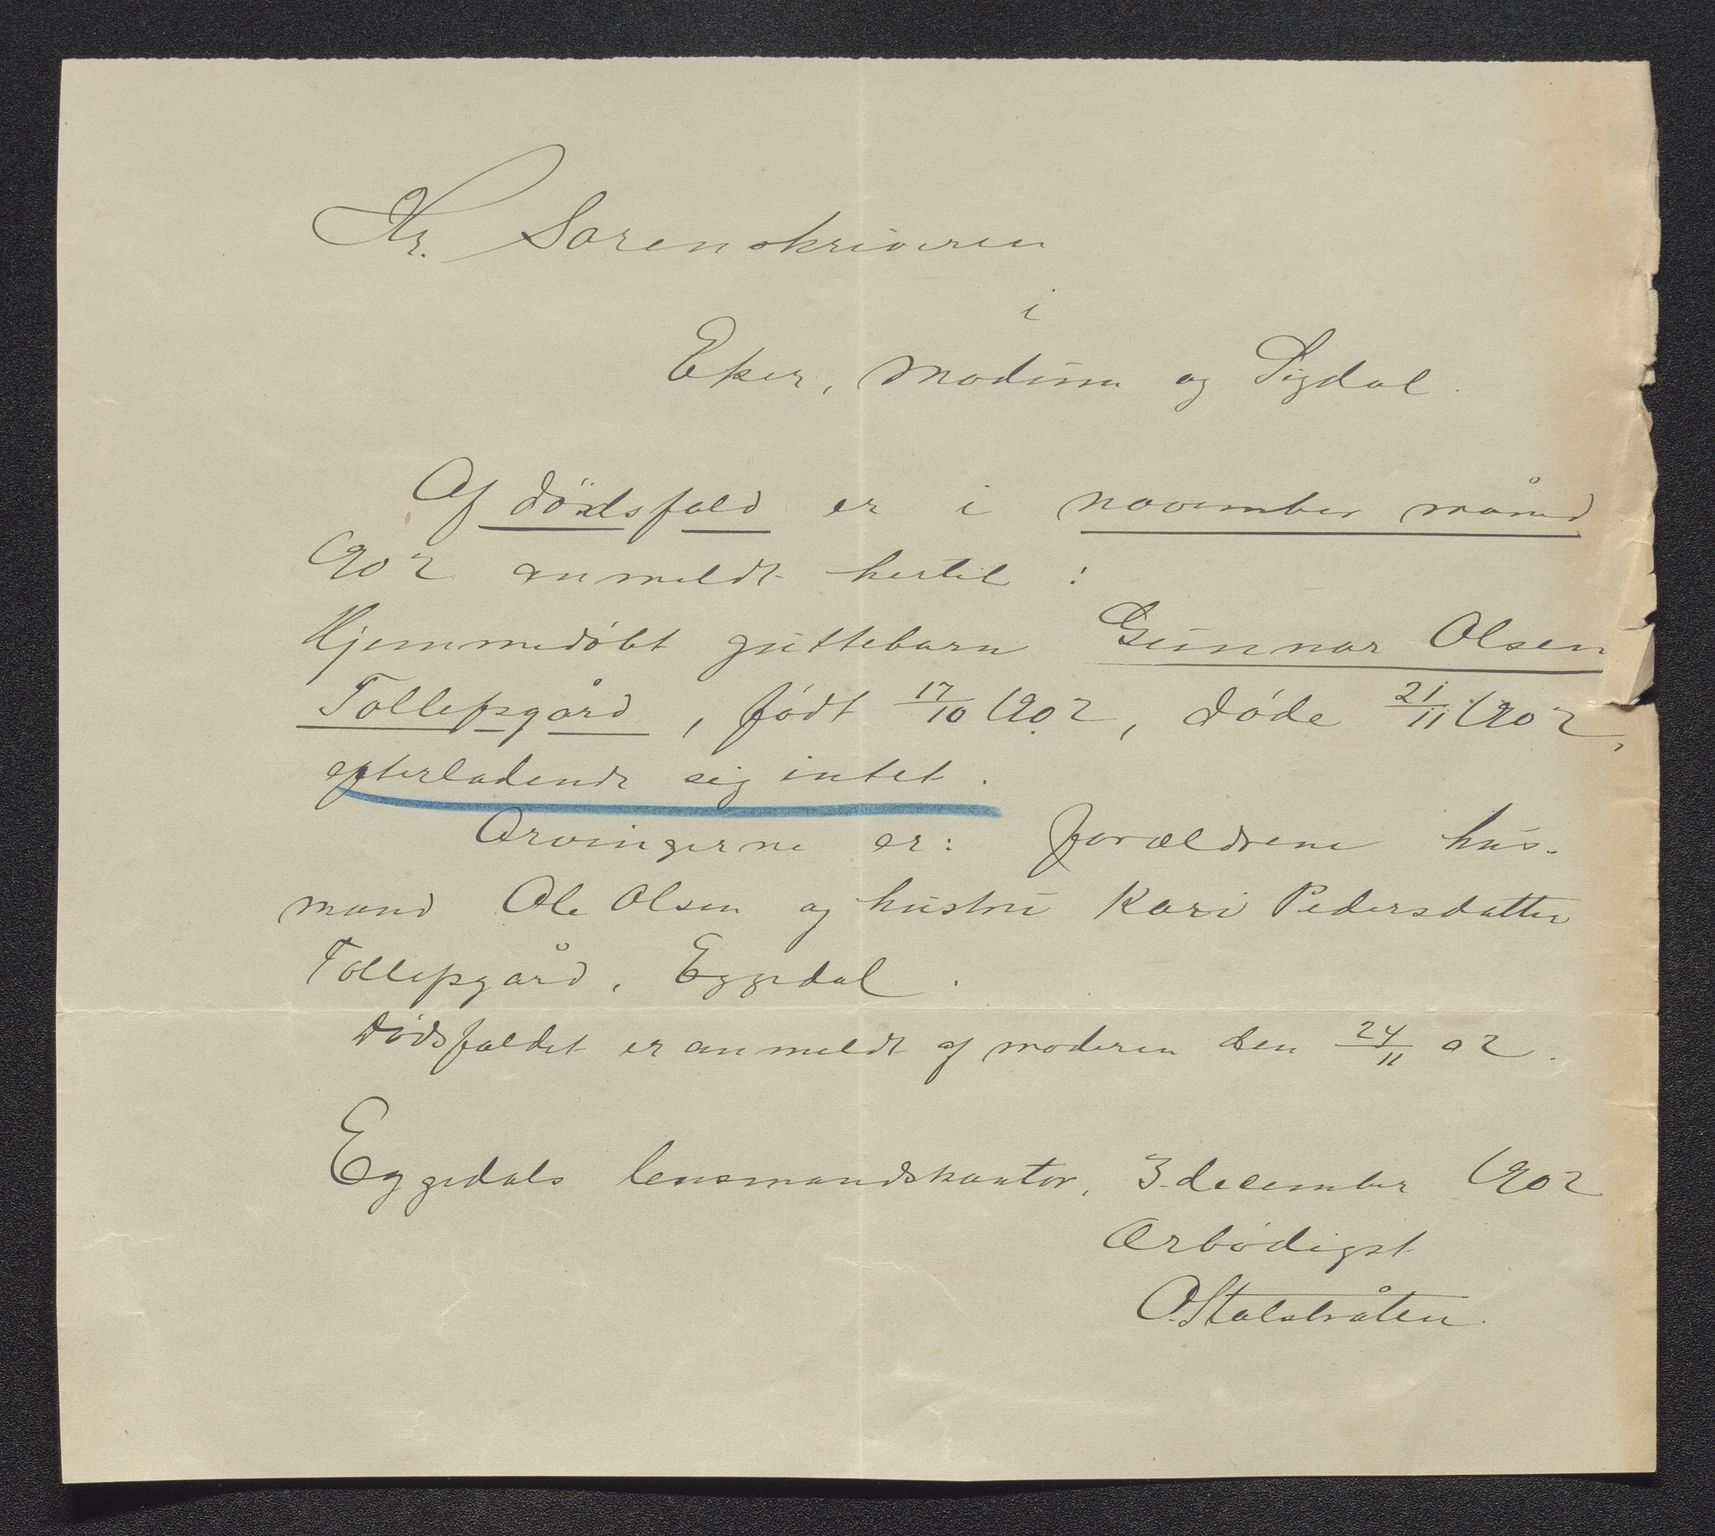 Hr. Sorenskriveren
i
Eker, Modum og Sigdal.
Af dödsfald er i november måned
1902 anmeldt hertil :
Hjemmedøbt guttebarn Gunnar Olsen
Tollefsgård, født 17/10 1902, døde 21/11 1902,
efterladende sig intet.
Arvingerne er: forældrene hus-
mand Ole Olsen og hustru Kari Pedersdatter
Tollefsgård, Eggedal.
Dødsfaldet er anmeldt af moderen den 24/11 02.
Eggedals lensmandskontor, 3. december 1902
Ærbødigst